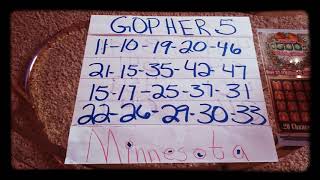 GOPHER 5
11-10-19-20-46
21-15-35-42-47
15-17-25-37-31
22-26-29-30-33
Minnesota